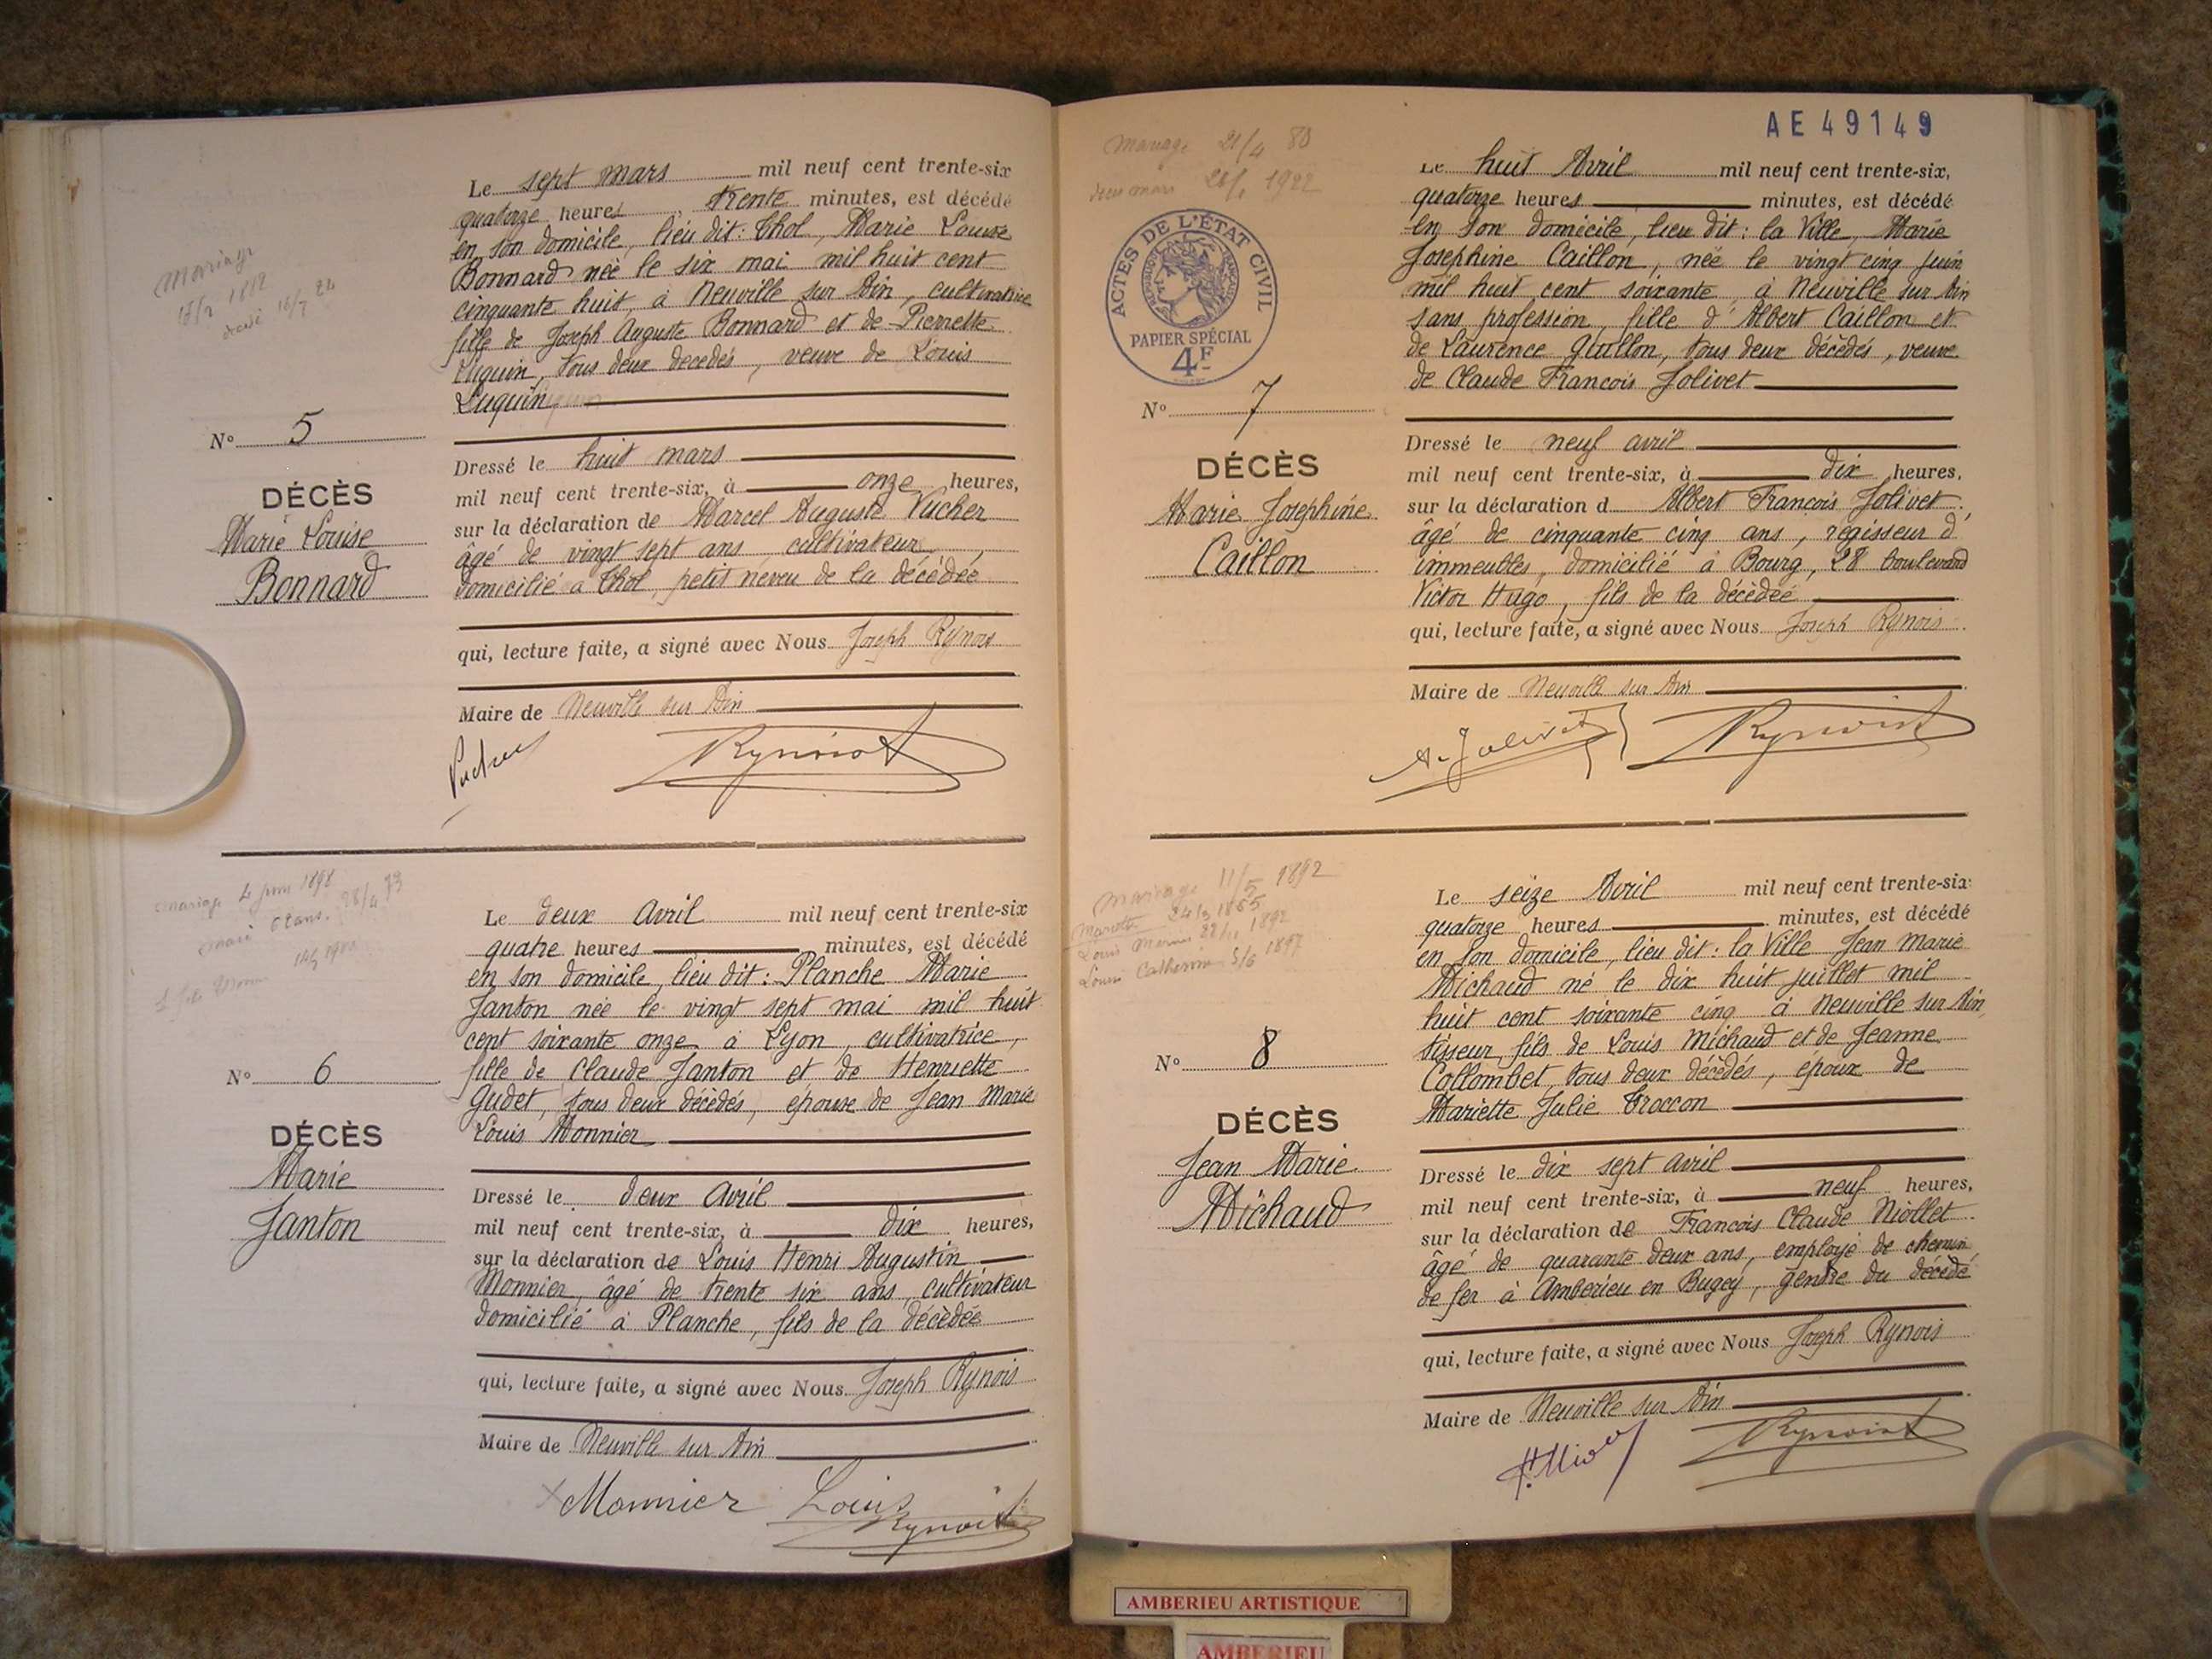 Mariage
Le sept mars mil neuf cent trente-six
quatorze heures trente minutes, est décédé
en son domicile, lieu dit : Thol, Marie Louise
Bonnard née le six mai mil huit cent
cinquante huit, à Neuville sur Ain, cultivatrice
fille de Joseph Auguste Bonnard et de Pierrette
Luquin, tous deux décédés, veuve de Louis
Luquin
N° 5
DÉCÈS
Marie Louise
Bonnard
Dressé le huit mars
mil neuf cent trente-six, à onze heures,
sur la déclaration de Marcel Auguste Vucher
âgé de vingt sept ans, cultivateur,
domicilié à Thol, petit neveu de la décédée
qui, lecture faite, a signé avec Nous Joseph Rynois
Maire de Neuville sur Ain
mariage 1898
Le deux Avril mil neuf cent trente-six
quatre heures minutes, est décédé
en son domicile, lieu dit : Planche Marie
Janton née le vingt sept mai mil huit
cent soixante onze à Lyon, cultivatrice,
fille de Claude Janton et de Henriette
Gudet, tous deux décédés, épouse de Jean Marie
Louis Monnier
N° 6
DÉCÈS
Marie
Janton
Dressé le deux Avril
mil neuf cent trente-six, à dix heures,
sur la déclaration de Louis Henri Augustin
Monnier, âgé de trente six ans, cultivateur
domicilié à Planche, fils de la décédée
qui, lecture faite, a signé avec Nous Joseph Rynois
Maire de Neuville sur Ain
Monnier Louis
AE 49149
Mariage 21/4 80
1922
ACTES DE L'ÉTAT CIVIL
RÉPUBLIQUE FRANÇAISE
PAPIER SPÉCIAL
4F
Le huit Avril mil neuf cent trente-six,
quatorze heures minutes, est décédé
en son domicile, lieu dit : la Ville, Marie
Josephine Caillon, née le vingt cinq juin
mil huit cent soixante, à Neuville sur Ain
sans profession, fille d'Albert Caillon et
de Laurence Gullon, tous deux décédés, veuve
de Claude François Jolivet
N° 7
DÉCÈS
Marie Josephine
Caillon
Dressé le neuf avril
mil neuf cent trente-six, à dix heures,
sur la déclaration d Albert François Jolivet,
âgé de cinquante cinq ans, régisseur d'
immeubles, domicilié à Bourg, 28 boulevard
Victor Hugo, fils de la décédée
qui, lecture faite, a signé avec Nous Joseph Rynois
Maire de Neuville sur Ain
A. Jolivet
Mariage 11/5 1892
Louis Marius 1892
Louise Catherine 5/6 1897
Le seize Avril mil neuf cent trente-six
quatorze heures minutes, est décédé
en son domicile, lieu dit : la Ville Jean Marie
Michaud né le dix huit juillet mil
huit cent soixante cinq à Neuville sur Ain,
tisseur, fils de Louis Michaud et de Jeanne
Collombet, tous deux décédés, époux de
Mariette Julie Troccon
N° 8
DÉCÈS
Jean Marie
Michaud
Dressé le dix sept avril
mil neuf cent trente-six, à neuf heures,
sur la déclaration de François Claude Niollet
âgé de quarante deux ans, employé de chemin
de fer à Amberieu en Bugey, gendre du décédé
qui, lecture faite, a signé avec Nous Joseph Rynois
Maire de Neuville sur Ain
AMBERIEU ARTISTIQUE
AMBERIEU